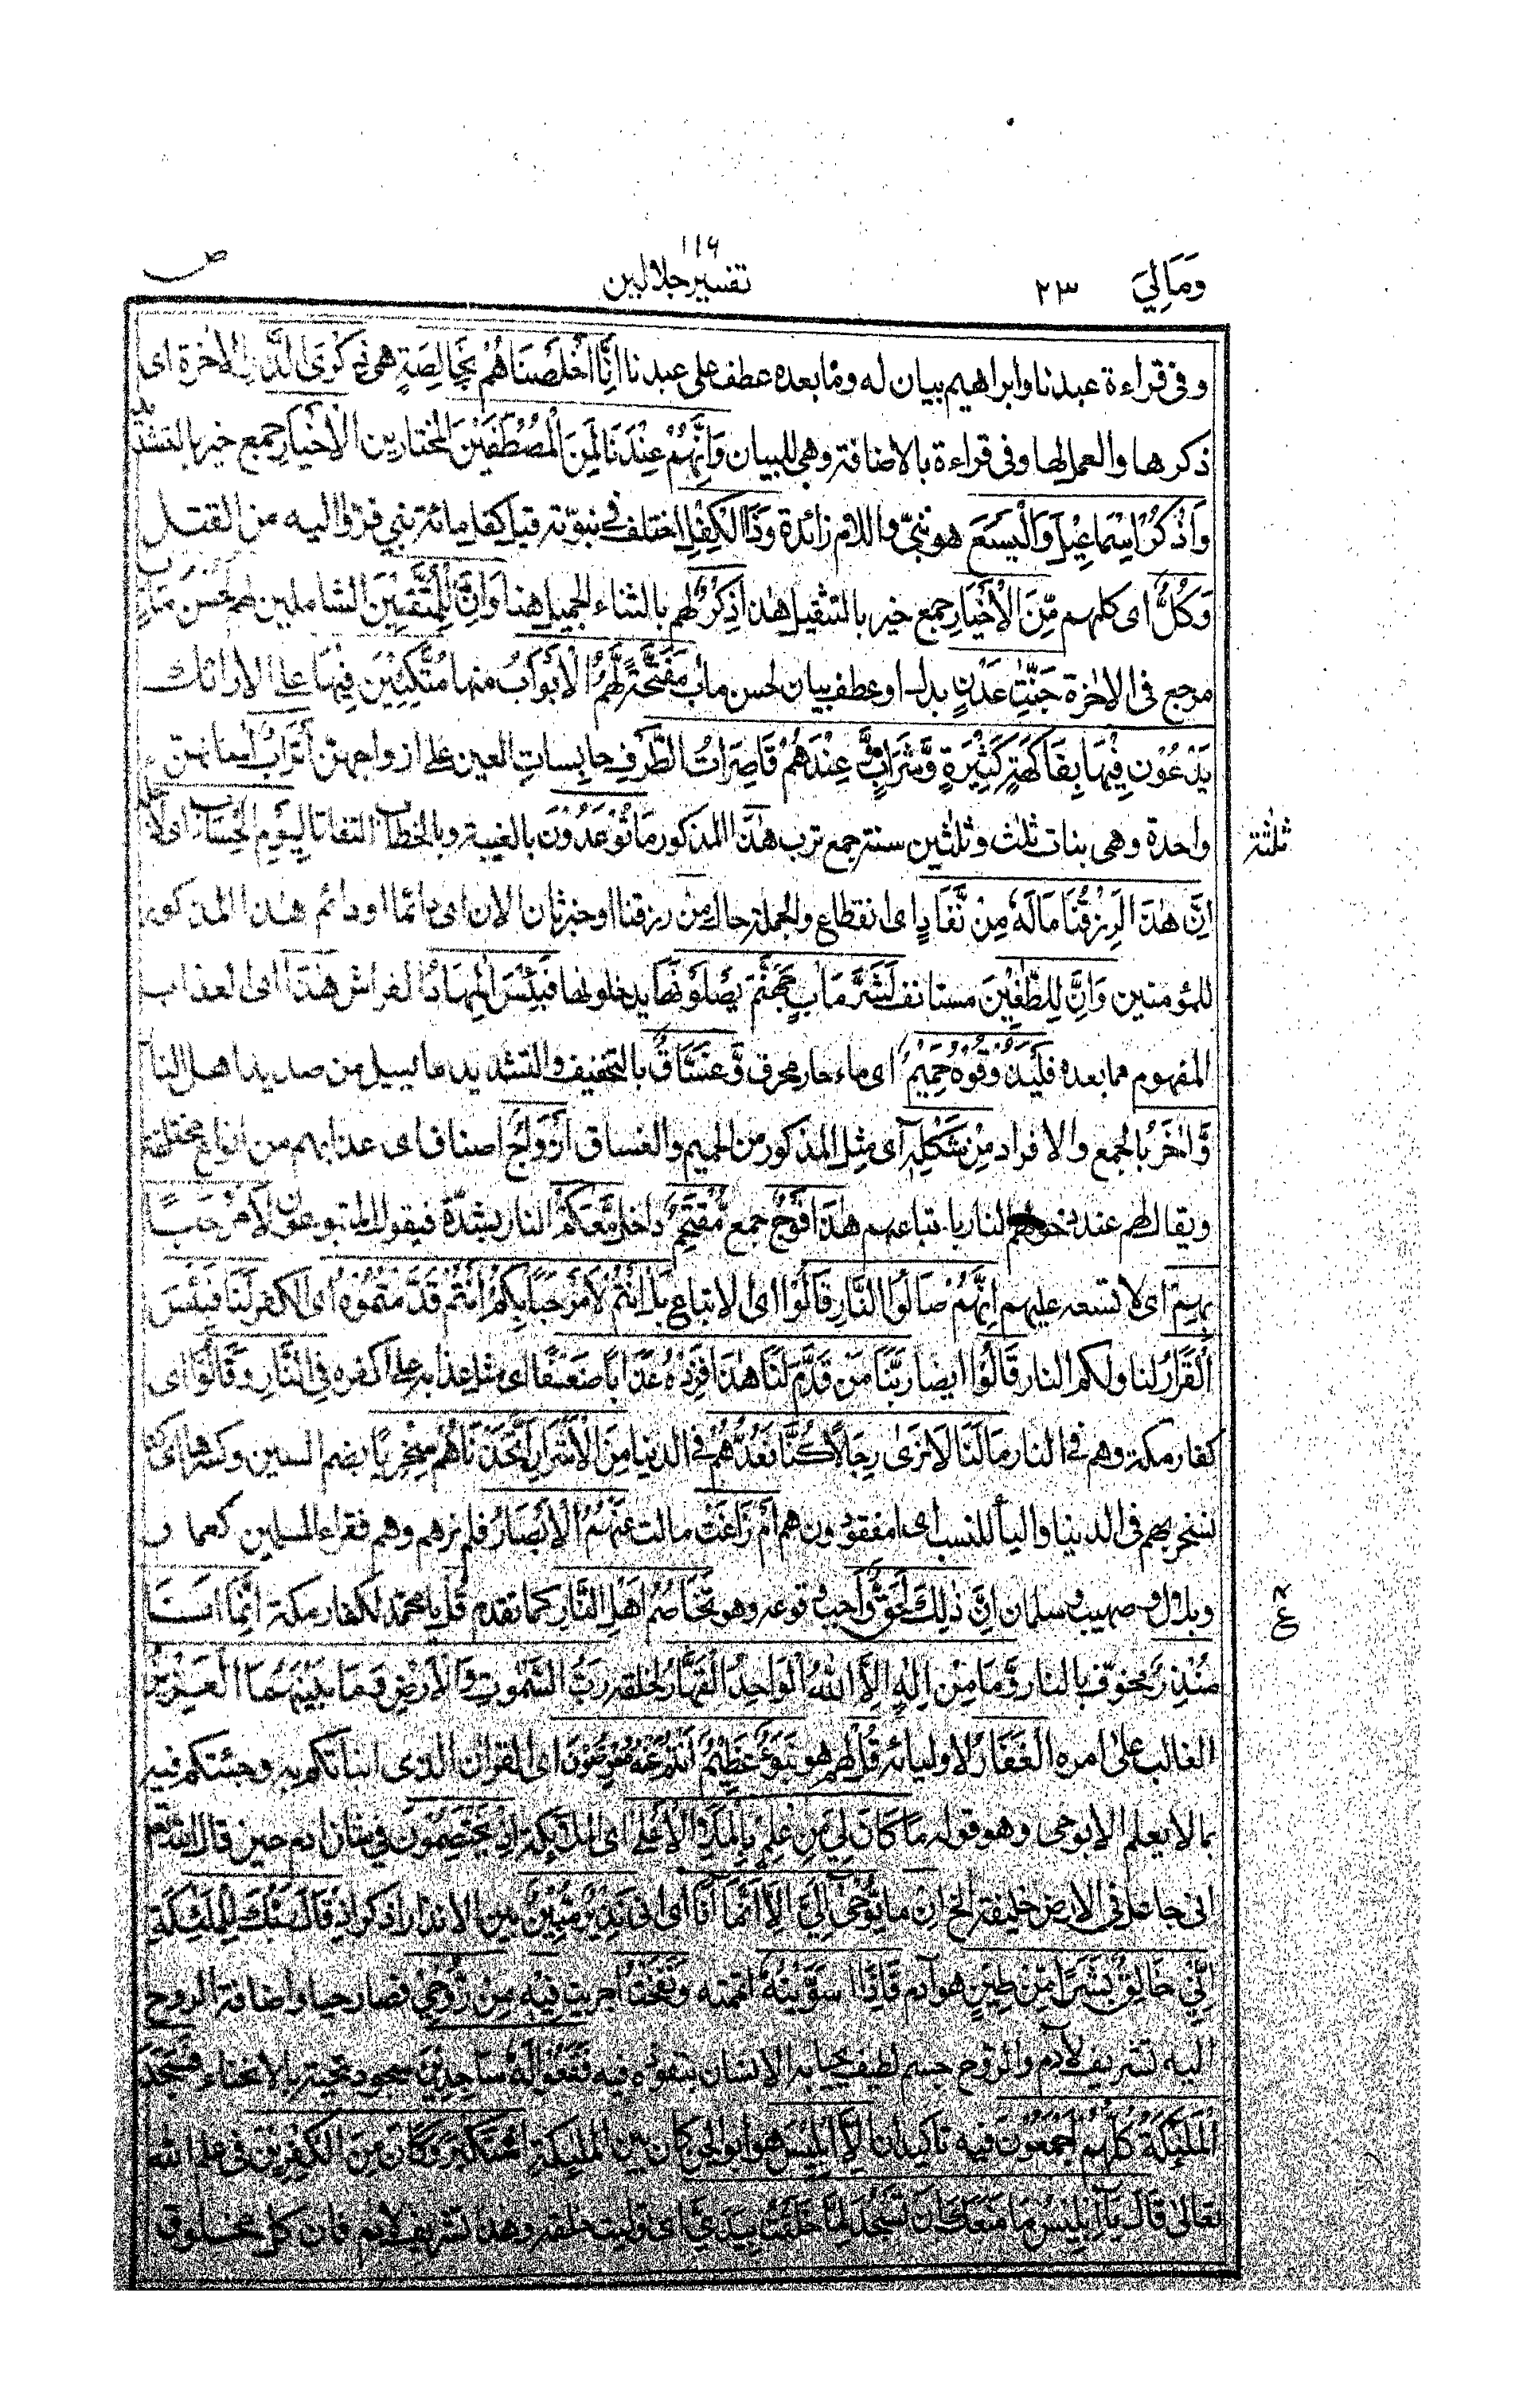 وَمَالِيَ ٢٣
١١٦
تفسير جلالين
ص
وفى قراءة عبدنا وابراهيم بيان له وما بعده عطف على عبدنا اِنَّا اَخْلَصْنَاهُمْ بِخَالِصَةٍ هى ذِكْرَى الدَّارِ الاخرة اى
ذكرها والعمل لها وفى قراءة بالاضافة وهى للبيان وَاِنَّهُمْ عِنْدَنَا لَمِنَ الْمُصْطَفَيْنَ المختارين الْاَخْيَارِ جمع خير بالتشديد
وَاذْكُرْ اِسْمَاعِيْلَ وَالْيَسَعَ هو نبىّ واللام زائدة وَذَا الْكِفْلِ اختلف فى نبوّته قيل كفل مائة نبى فرّوا اليه من القتل
وَكُلٌّ اى كلهم مِّنَ الْاَخْيَارِ جمع خير بالتثقيل هٰذَا ذِكْرٌ لهم بالثناء الجميل هنا وَاِنَّ لِلْمُتَّقِيْنَ الشاملين لهم لَحُسْنَ مَاٰبٍ
مرجع فى الاٰخرة جَنّٰتِ عَدْنٍ بدل او عطف بيان لحسن ماٰب مُّفَتَّحَةً لَّهُمُ الْاَبْوَابُ منها مُتَّكِئِيْنَ فِيْهَا على الارائك
يَدْعُوْنَ فِيْهَا بِفَاكِهَةٍ كَثِيْرَةٍ وَّشَرَابٍ وَّعِنْدَهُمْ قَاصِرَاتُ الطَّرْفِ حابسات العين على ازواجهن اَتْرَابٌ اسنانهن
واحدة وهى بنات ثلٰث وثلٰثين سنة جمع ترب هٰذَا المذكور مَا تُوْعَدُوْنَ بالغيبة وبالخطاب التفاتا لِيَوْمِ الْحِسَابِ اى لاجله
ثلٰثة
اِنَّ هٰذَا لَرِزْقُنَا مَالَهٗ مِنْ نَّفَادٍ اى انقطاع والجملة حال من رزقنا او خبر ثان لان اى دائما او دائم هٰذَا المذكور
للمؤمنين وَاِنَّ لِلطّٰغِيْنَ مستانف لَشَرَّ مَاٰبٍ جَهَنَّمَ يَصْلَوْنَهَا يدخلونها فَبِئْسَ الْمِهَادُ الفراش هٰذَا اى العذاب
المفهوم مما بعده فَلْيَذُوْقُوْهُ حَمِيْمٌ اى ماء حار محرق وَّغَسَّاقٌ بالتخفيف والتشديد ما يسيل من صديد اهل النار
وَّاٰخَرُ بالجمع والافراد مِنْ شَكْلِهٖٓ اى مثل المذكور من الحميم والغساق اَزْوَاجٌ اصناف اى عذابهم من انواع مختلفة
ويقال لهم عند دخولهم النار باتباعهم هٰذَا فَوْجٌ جمع مُّقْتَحِمٌ داخل مَّعَكُمْ النار بشدّة فيقول المتبوعون لَا مَرْحَبًا
بِهِمْ اى لا سعة عليهم اِنَّهُمْ صَالُوا النَّارِ قَالُوْا اى الاتباع بَلْ اَنْتُمْ لَا مَرْحَبًا بِكُمْ اَنْتُمْ قَدَّمْتُمُوْهُ اى الكفر لَنَا فَبِئْسَ
الْقَرَارُ لنا ولكم النار قَالُوْا ايضا رَبَّنَا مَنْ قَدَّمَ لَنَا هٰذَا فَزِدْهُ عَذَابًا ضِعْفًا اى مثل عذابه على كفره فِى النَّارِ وَقَالُوْا اى
كفار مكة وهم فى النار مَا لَنَا لَا نَرٰى رِجَالًا كُنَّا نَعُدُّهُمْ فى الدنيا مِنَ الْاَشْرَارِ اَتَّخَذْنَاهُمْ سِخْرِيًّا بضم السين وكسرها اى كنا
نسخر بهم فى الدنيا والياء للنسب اى امفقودون هم اَمْ زَاغَتْ مالت عَنْهُمُ الْاَبْصَارُ فلم نرهم وهم فقراء المسلمين كعمار و
بلال وصهيب وسلمان اِنَّ ذٰلِكَ لَحَقٌّ واجب وقوعه وهو تَخَاصُمُ اَهْلِ النَّارِ كما تقدم قُلْ يا محمد لكفار مكة اِنَّمَا اَنَا
ع
مُنْذِرٌ مخوّف بالنار وَّمَا مِنْ اِلٰهٍ اِلَّا اللّٰهُ الْوَاحِدُ الْقَهَّارُ لخلقه رَبُّ السَّمٰوٰتِ وَالْاَرْضِ وَمَا بَيْنَهُمَا الْعَزِيْزُ
الغالب على امره الْغَفَّارُ لاوليائه قُلْ لهم هو نَبَؤٌا عَظِيْمٌ اَنْتُمْ عَنْهُ مُعْرِضُوْنَ اى القران الذى انباتكم به وجئتكم فيه
بما لا يعلم الا بوحى وهو قوله مَا كَانَ لِىَ مِنْ عِلْمٍ بِالْمَلَاِ الْاَعْلٰى اى الملٰئكة اِذْ يَخْتَصِمُوْنَ فى شان ادم حين قال الله تعالى
انى جاعل فى الارض خليفة الخ اِنْ ما يُّوْحٰٓى اِلَىَّ اِلَّا اَنَّمَا اَنَا اى انى نَذِيْرٌ مُّبِيْنٌ بين الانذار اذكر اِذْ قَالَ رَبُّكَ لِلْمَلٰئِكَةِ
اِنِّىْ خَالِقٌ بَشَرًا مِّنْ طِيْنٍ هو ادم فَاِذَا سَوَّيْتُهٗ اتممته وَنَفَخْتُ اجريت فِيْهِ مِنْ رُّوْحِىْ فصار حيا واضافة الروح
اليه تشريف لاٰدم والروح جسم لطيف يحيا به الانسان بنفوذه فيه فَقَعُوْا لَهٗ سَاجِدِيْنَ سجود تحية بالانحناء فَسَجَدَ
الْمَلٰٓئِكَةُ كُلُّهُمْ اَجْمَعُوْنَ فيه تاكيدان اِلَّآ اِبْلِيْسَ هو ابو الجن كان بين الملٰئكة اِسْتَكْبَرَ وَكَانَ مِنَ الْكٰفِرِيْنَ فى علم الله
تعالى قَالَ يٰٓاِبْلِيْسُ مَا مَنَعَكَ اَنْ تَسْجُدَ لِمَا خَلَقْتُ بِيَدَىَّ اى توليت خلقه وهذا تشريف لاٰدم فان كل مخلوق